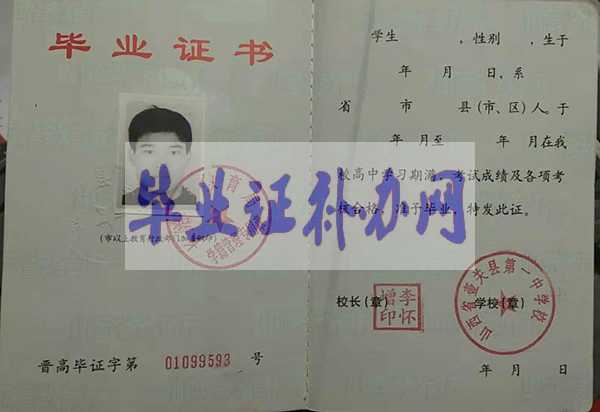 毕业证书
毕业证补办网
(市以上教育行政部门
晋高毕证字第 01099593 号
学生 ,性别 ,生于
年 月 日,系
省 市 县(市、区)人。于
年 月至 年 月在我
校高中学习期满,考试成绩及各项考
核合格,准予毕业,特发此证。
校长(章)
李怀增印
学校(章)
山西省壶关县第一中学校
年 月 日